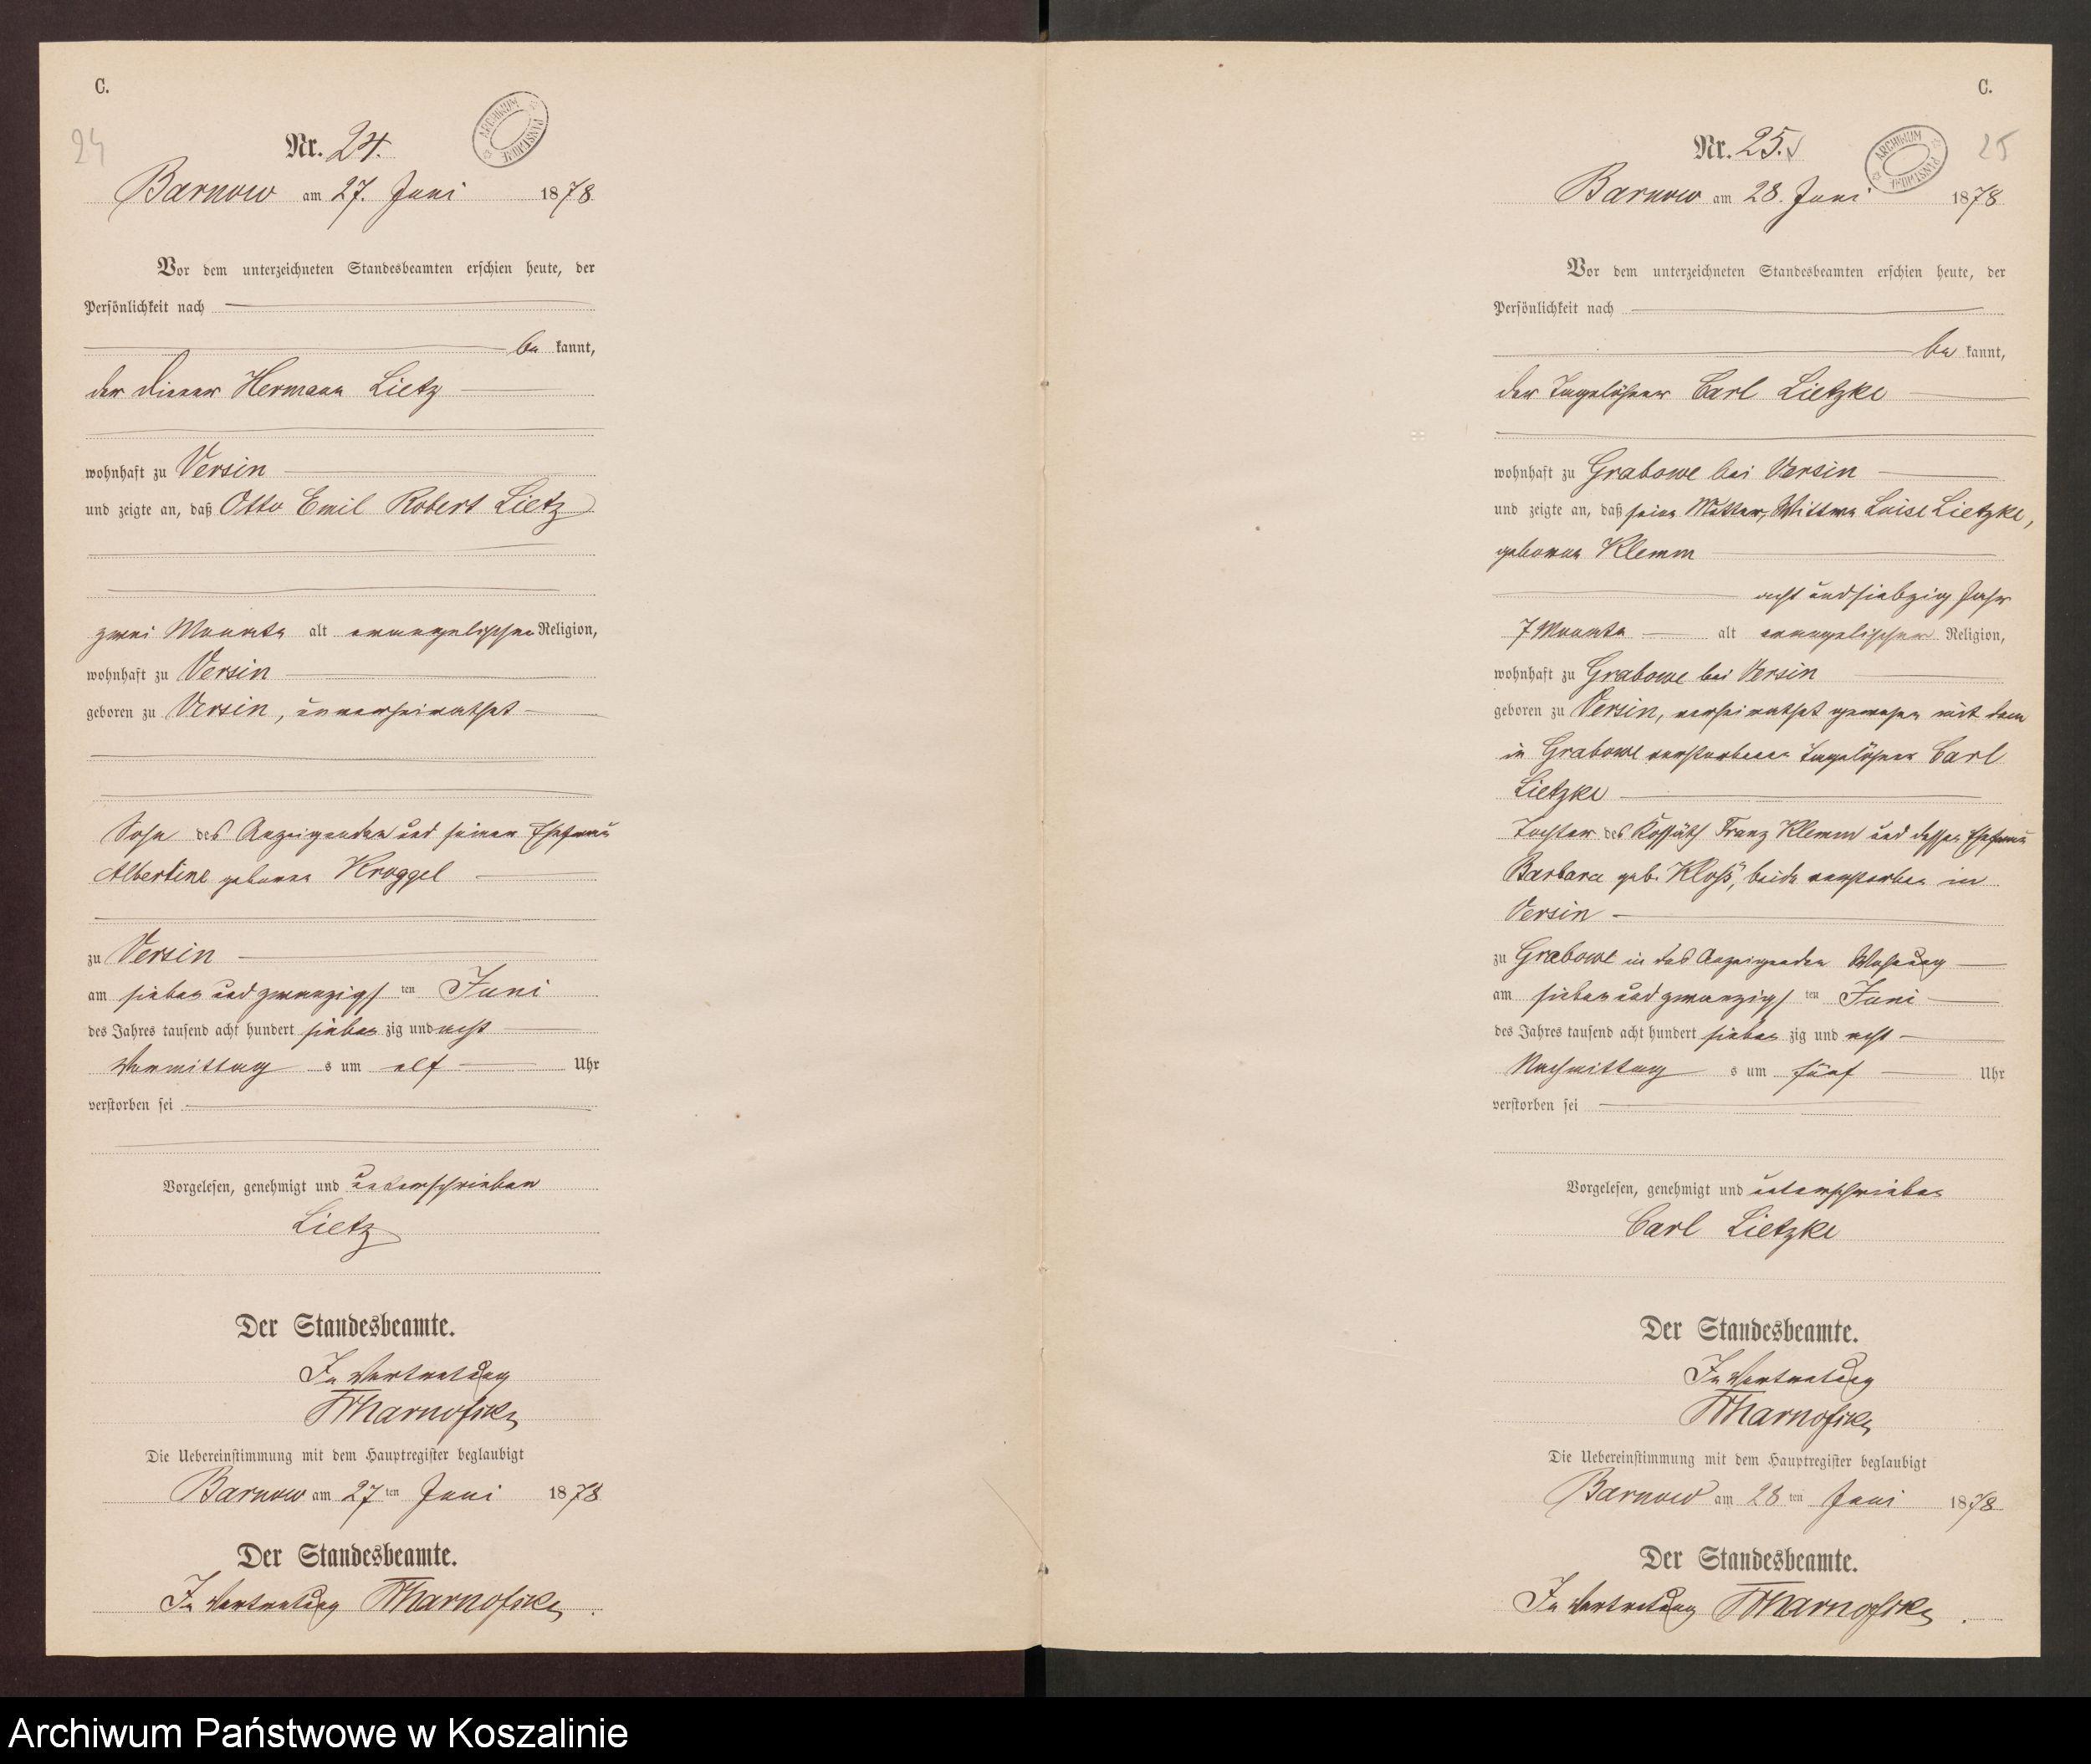 C.
24
Nr. 24.
ARCHIWUM PAŃSTWOWE
Barnow am 27. Juni 1878
Vor dem unterzeichneten Standesbeamten erschien heute, der
Persönlichkeit nach
be kannt,
der Diener Hermann Lietz
wohnhaft zu Versin
und zeigte an, daß Otto Emil Robert Lietz
zwei Monate alt evangelischer Religion,
wohnhaft zu Versin
geboren zu Versin, unverheirathet
Sohn des Anzeigenden und seiner Ehefrau
Albertine geborne Kroggel
zu Versin
am sieben und zwanzigs ten Juni
des Jahres tausend acht hundert sieben zig und acht
Vormittag s um elf Uhr
verstorben sei
Vorgelesen, genehmigt und unterschrieben
Lietz
Der Standesbeamte.
In Vertretung
Die Uebereinstimmung mit dem Hauptregister beglaubigt
Barnow am 27 ten Juni 1878
Der Standesbeamte.
In Vertretung
C.
25
Nr. 25.
ARCHIWUM PAŃSTWOWE
Barnow am 28. Juni 1878
Vor dem unterzeichneten Standesbeamten erschien heute, der
Persönlichkeit nach
be kannt,
der Tagelöhner Carl Lietzke
wohnhaft zu Grabowe bei Versin
und zeigte an, daß seine Mutter, Wittwe Luise Lietzke,
geborne Klemm
acht und siebzig Jahr
7 Monate alt evangelischer Religion,
wohnhaft zu Grabowe bei Versin
geboren zu Versin, verheirathet gewesen mit dem
in Grabowe verstorbenen Tagelöhner Carl
Lietzke
Tochter des Kossäth Franz Klemm und dessen Ehefrau
Barbara geb. Kloß, beide verstorben in
Versin
zu Grabowe in des Anzeigenden Wohnung
am sieben und zwanzigs ten Juni
des Jahres tausend acht hundert sieben zig und acht
Nachmittag s um fünf Uhr
verstorben sei
Vorgelesen, genehmigt und unterschrieben
Carl Lietzke
Der Standesbeamte.
In Vertretung
Die Uebereinstimmung mit dem Hauptregister beglaubigt
Barnow am 28 ten Juni 1878
Der Standesbeamte.
In Vertretung
Archiwum Państwowe w Koszalinie